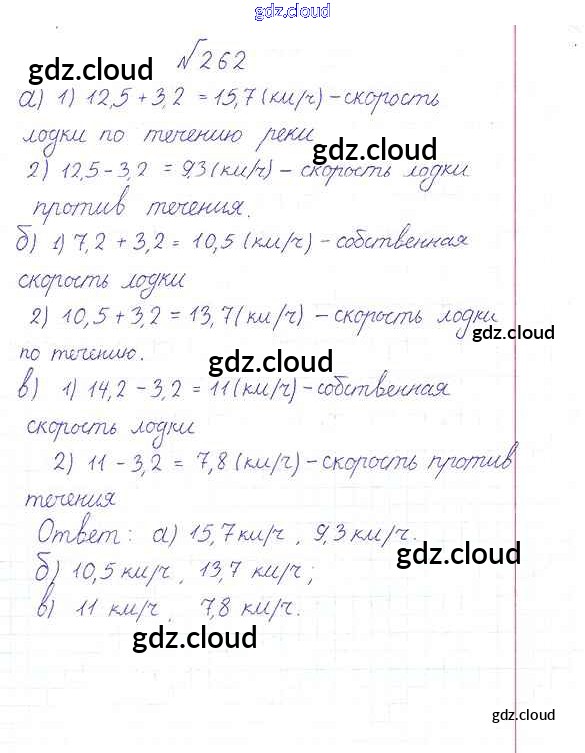 gdz.cloud
№262
gdz.cloud
а) 1) 12,5 + 3,2 = 15,7 (км/ч) – скорость
лодки по течению реки
gdz.cloud
2) 12,5 – 3,2 = 9,3 (км/ч) – скорость лодки
против течения.
б) 1) 7,2 + 3,2 = 10,5 (км/ч) – собственная
скорость лодки
2) 10,5 + 3,2 = 13,7 (км/ч) – скорость лодки
gdz.cloud
по течению.
gdz.cloud
в) 1) 14,2 – 3,2 = 11 (км/ч) – собственная
скорость лодки
2) 11 – 3,2 = 7,8 (км/ч) – скорость против
течения
Ответ: а) 15,7 км/ч, 9,3 км/ч.
gdz.cloud
б) 10,5 км/ч, 13,7 км/ч;
в) 11 км/ч, 7,8 км/ч.
gdz.cloud
gdz.cloud